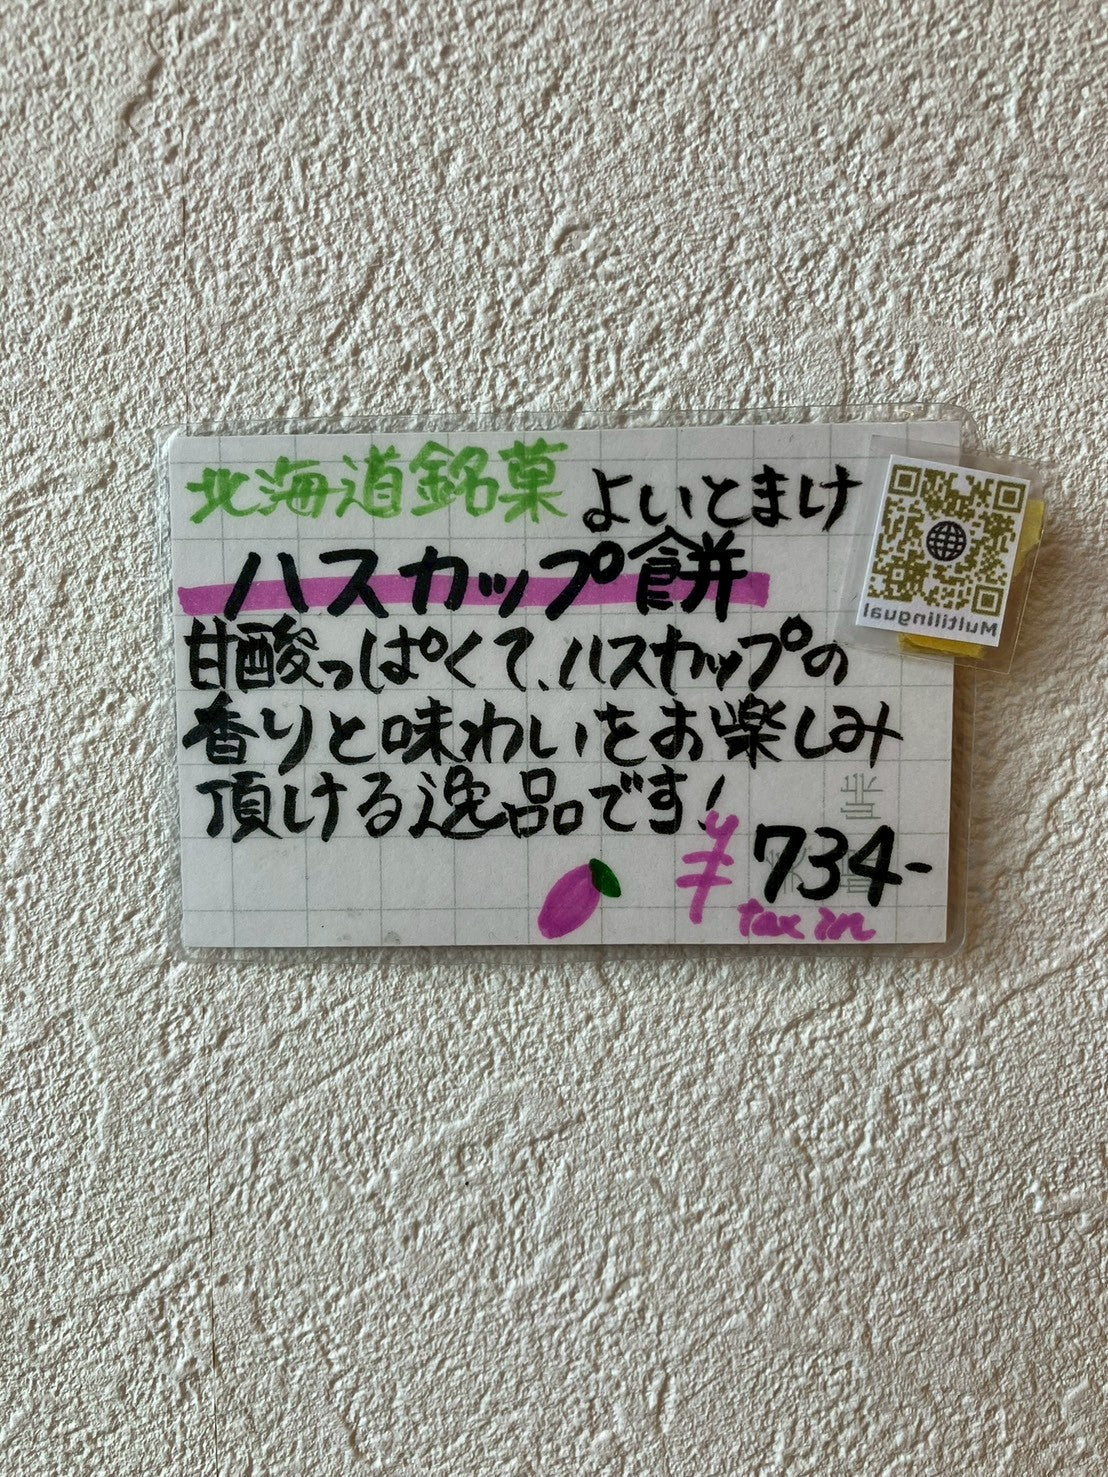 北海道銘菓 よいとまけ
ハスカップ餅
甘酸っぱくて、ハスカップの
香りと味わいをお楽しみ
頂ける逸品です!
¥734-
tax in
Multilingual